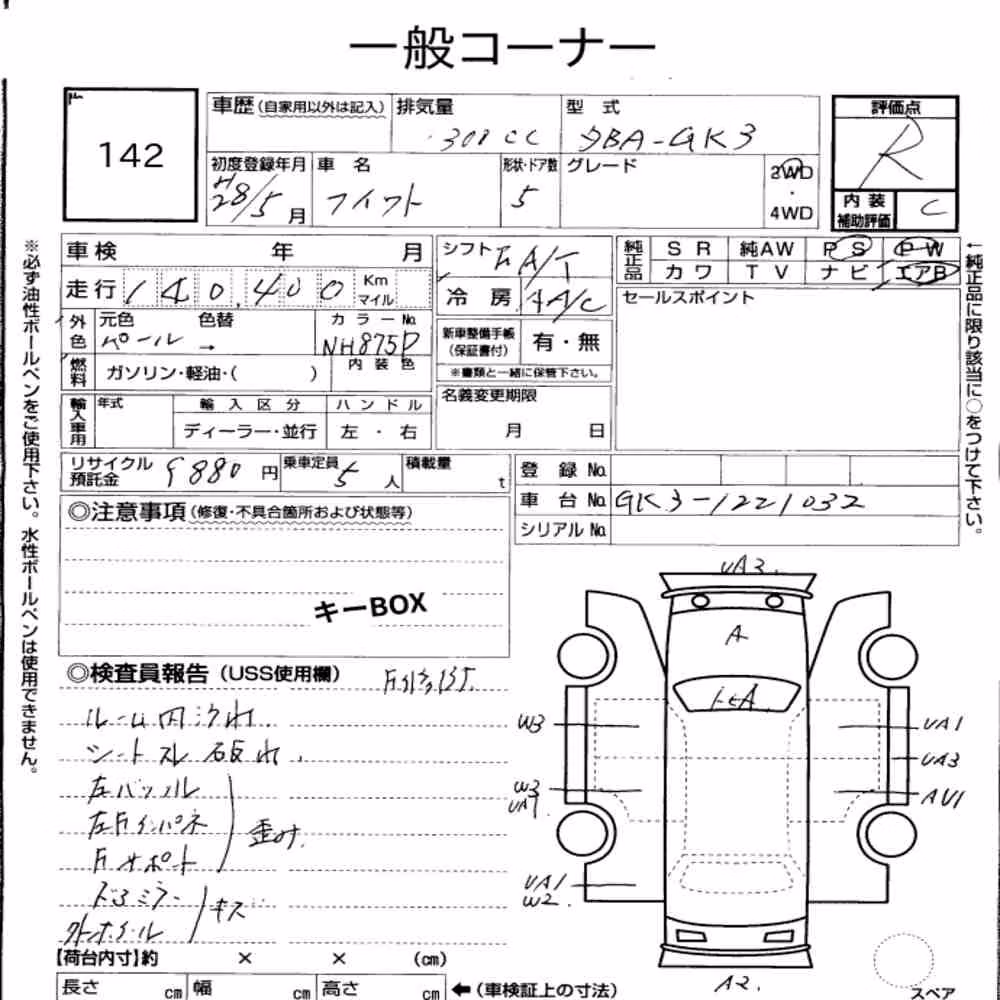 一般コーナー
142
車歴(自家用以外は記入)
排気量
型 式
DBA-GK3
評価点
R
初度登録年月
H28/5月
車 名
フィット
形状・ドア数
5
グレード
2WD
・
4WD
内装補助評価
C
車検 年 月
シフト
A/T
純正品
SR 純AW PS PW
カワ TV ナビ エアB
走行 140,400 Km マイル
冷房 AA/C
セールスポイント
外色
元色 色替
パール →
カラーNo.
NH875P
新車整備手帳(保証書付)
有・無
※書類と一緒に保管下さい。
燃料
ガソリン・軽油・( )
内装色
名義変更期限
月 日
輸入車用
年式
輸入区分
ハンドル
ディーラー・並行
左・右
リサイクル預託金 9880 円
乗車定員 5 人
積載量 t
登録No.
車台No. GK3-1221032
シリアルNo.
◎注意事項(修復・不具合箇所および状態等)
キーBOX
◎検査員報告(USS使用欄)
ルーム内汚れ.
シートスレ破れ.
左バッフル
左Fインパネ
Fサポート
歪み.
ドアミラー
外ホイール
キズ
【荷台内寸】約 × × (cm)
長さ cm 幅 cm 高さ cm
←(車検証上の寸法)
※必ず油性ボールペンをご使用下さい。水性ボールペンは使用できません。
←純正品に限り該当に○をつけて下さい。
UA2.
A
W3
UA1
UA3
W3
AU1
UA1
W2.
A2.
スペア